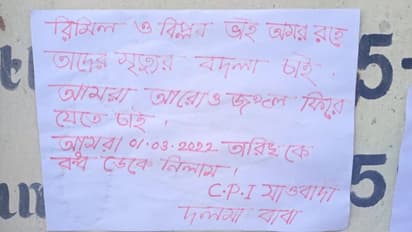 রিমিল ও বিপ্লব ভাই অমর রহে
তাদের মৃত্যুর বদলা চাই।
আমরা আরোও জঙ্গল ফিরে
যেতে চাই।
আমরা 01.03.2022 তারিখ কে
বন্ধ ডেকে নিলাম।
C.P.I মাওবাদী
দলমা বাবা
5-
5